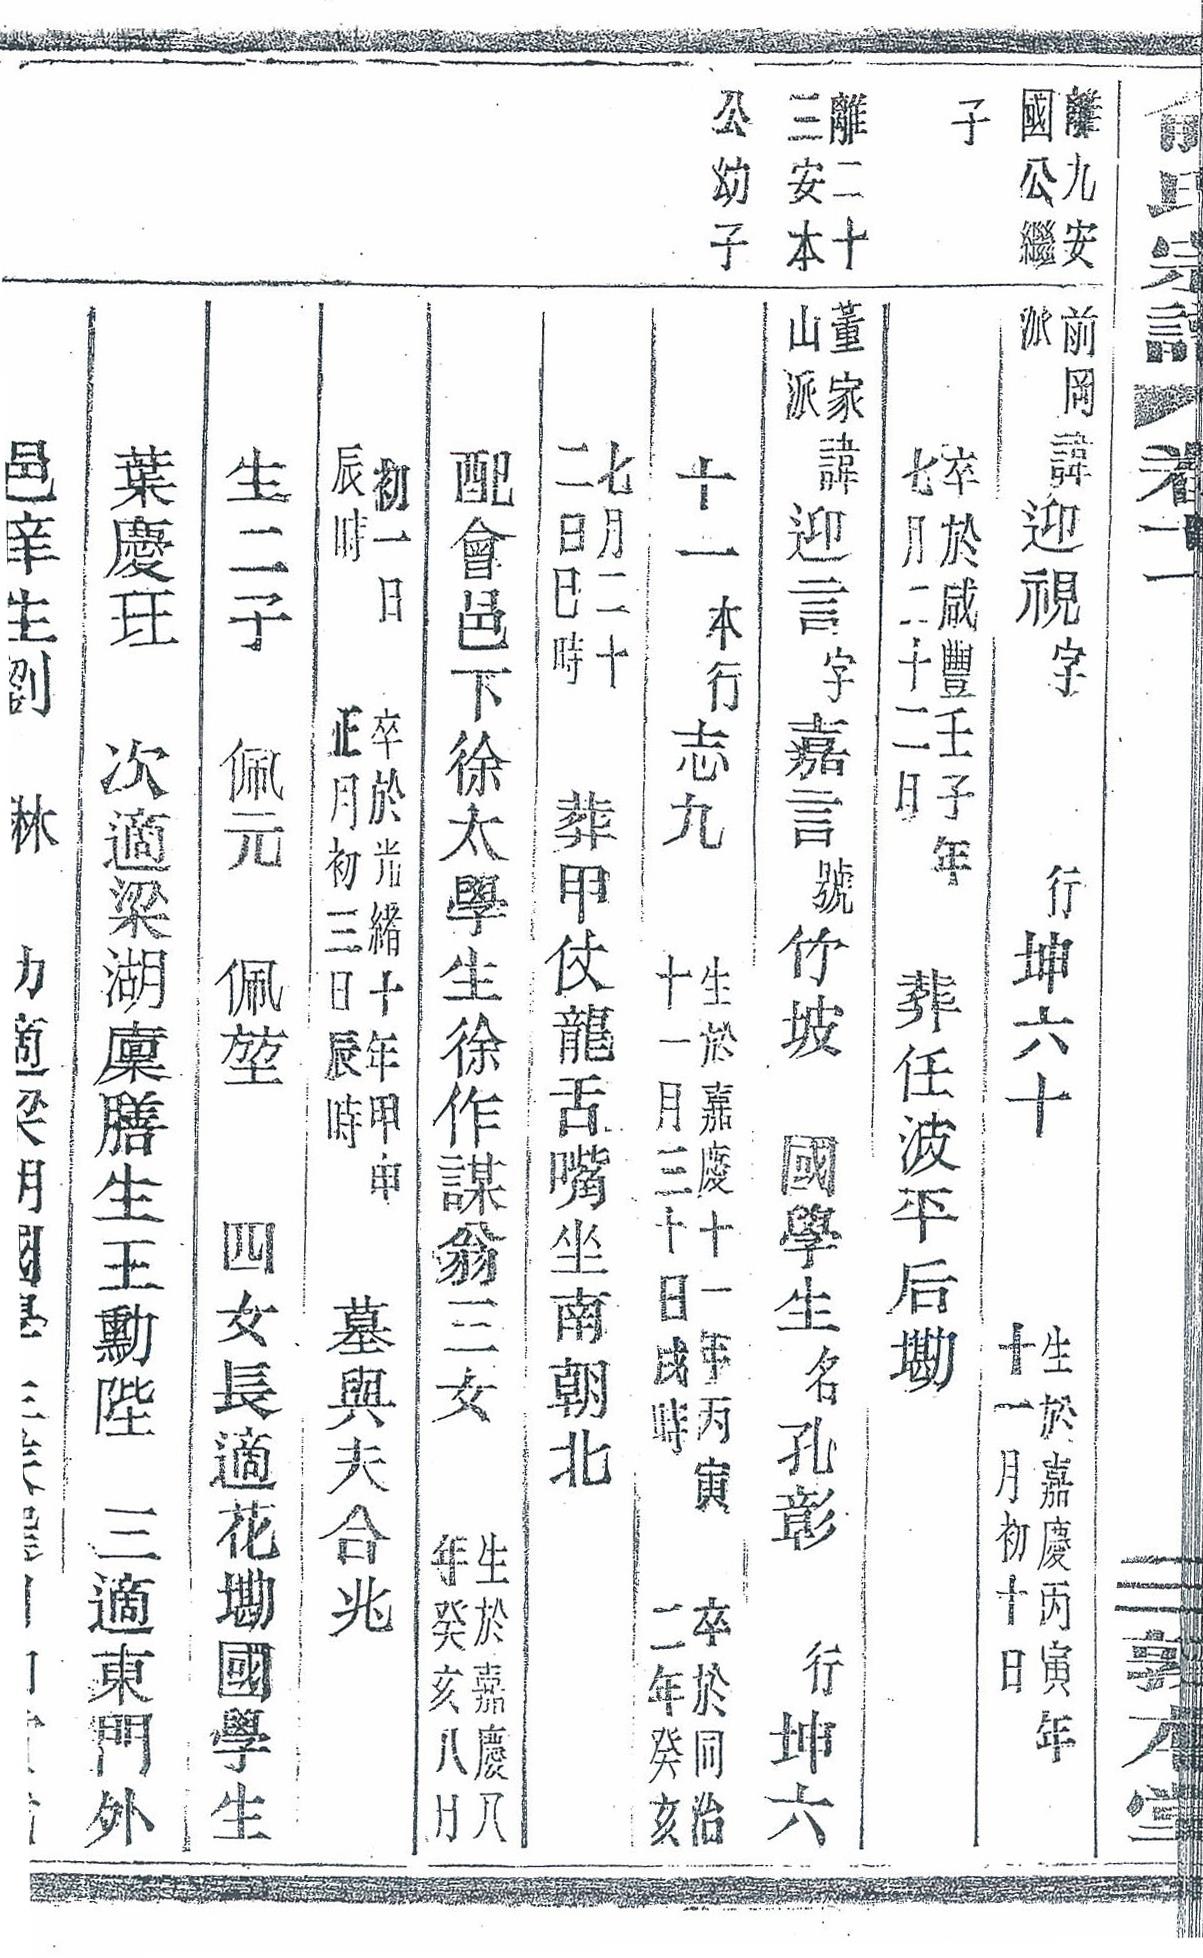 俞氏宗譜 卷十一 三 敦本堂
離九安
國公繼
子
前岡
派
諱迎視字 行坤六十 生於嘉慶丙寅年
十一月初十日
卒於咸豐壬子年
七月二十二日 葬任波平后墈
離二十
三安本
公幼子
董家
山派
諱迎言字嘉言號竹坡 國學生名孔彰 行坤六
十一 本行志九 生於嘉慶十一年丙寅
十一月三十日戌時 卒於同治
二年癸亥
七月二十
二日巳時 葬甲仗龍舌嘴坐南朝北
配會邑下徐太學生徐作謀翁三女 生於嘉慶八
年癸亥八月
初一日
辰時 卒於光緒十年甲申
正月初三日辰時 墓與夫合兆
生二子 佩元 佩堃 四女長適花墈國學生
葉慶玨 次適梁湖廩膳生王勳陛 三適東門外
邑庠生劉 林 幼適梁